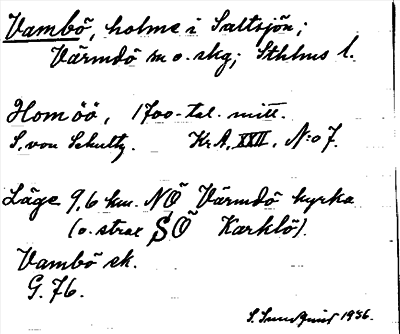 Vambö, holme i Saltsjön;
Värmdö m o. skg; Sthlms l.
Homöö, 1700-tal. mitt.
S. von Schultz. Kr.A. XXII. N:o 7.
Läge 9,6 km. NÖ Värmdö kyrka
(o. strax SÖ Karklö).
Vambö ek.
G. 76.
S. Sundquist 1936.